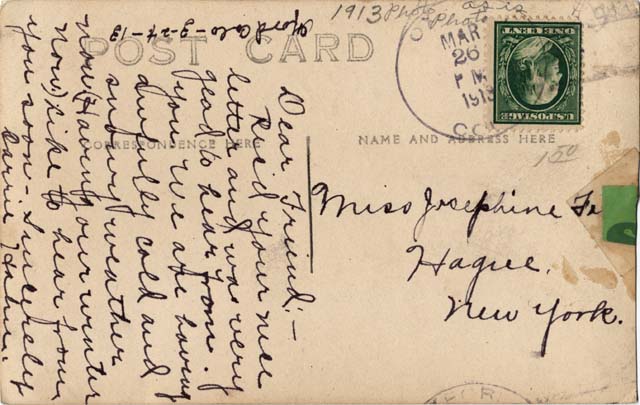 1913 Photo as is
Photo
POST CARD
Colo - 3-24-13
MAR
26
PM
1913
U.S. POSTAGE
ONE CENT
1.50
CORRESPONDENCE HERE
NAME AND ADDRESS HERE
Dear Friend:-
Rec'd your nice
letter and was very
glad to hear from
you. We are having
awfully cold and
snowy weather
now. Having our winter
now. Like to hear from
you soon - Sincerely
Carrie
Miss Josephine
Hague.
New York.